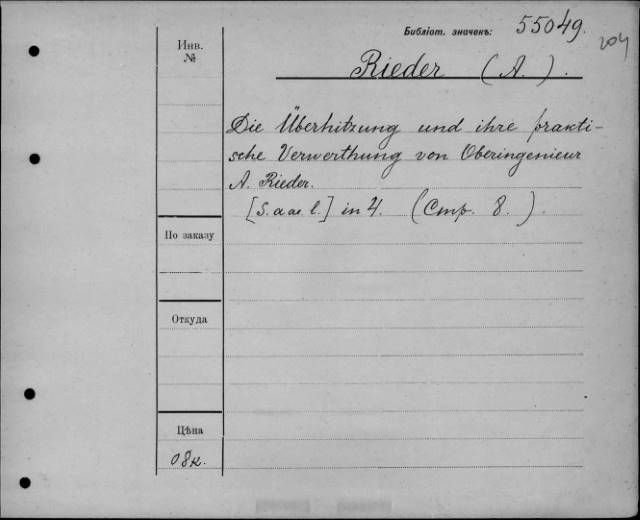 Библіот. значекъ: 55049.
204
Инв.
№
Rieder (A.).
Die Überhitzung und ihre prakti-
sche Verwerthung von Oberingenieur
A. Rieder.
[S. a. l.] in 4. (Стр. 8.).
По заказу
Откуда
Цѣна
08к.